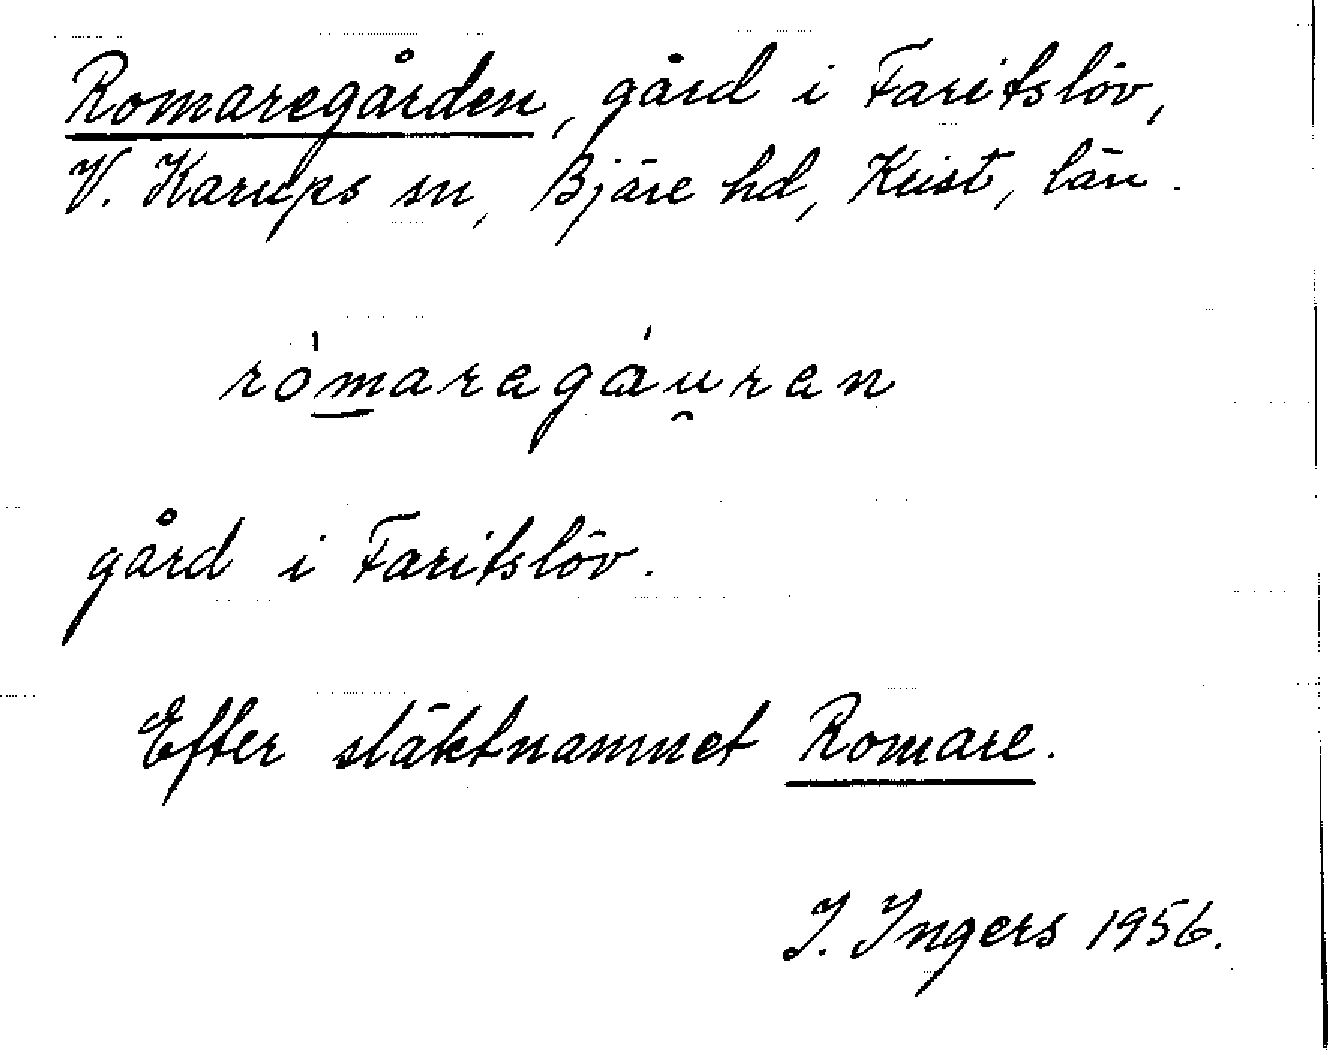 Romaregården, gård i Faritslöv,
V. Karups sn, Bjäre hd, Krist, län.
ròmaragáu̯ran
gård i Faritslöv.
Efter släktnamnet Romare.
I. Ingers 1956.